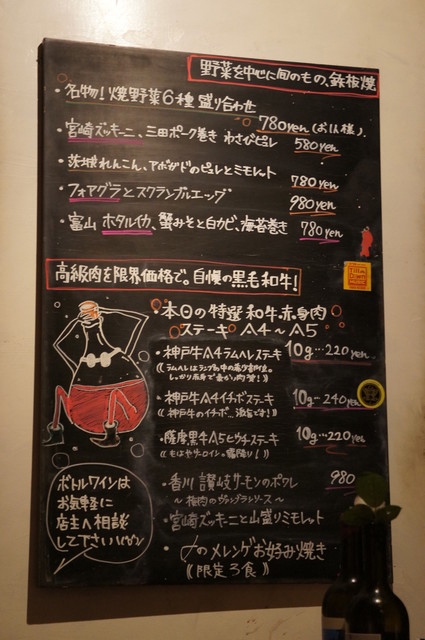 野菜を中心に旬のもの、鉄板焼
・名物!焼野菜6種盛り合わせ
780yen(お1人様).
・宮崎ズッキーニ、三田ポーク巻き わさびピレ 580yen
・茨城れんこん、アボガドのピレとミモレット
780yen
・フォアグラとスクランブルエッグ 980yen
・富山 ホタルイカ、蟹みそと白カビ、海苔巻き 780yen
高級肉を限界価格で。自慢の黒毛和牛!
・本日の特選和牛赤身肉
ステーキ A4〜A5
・神戸牛A4ラムヘレステーキ 10g…220yen
・神戸牛A4イチボステーキ 10g…240yen
《神戸牛のイチボ…
・薩摩黒牛A5ヒウチステーキ 10g…220yen
《もはやサーロイン。霜降り!》
・香川 讃岐サーモンのポワレ 980
〜梅肉のヴァンブランソース〜
・宮崎ズッキーニと山盛りミモレット
・〆のメレンゲお好み焼き
《限定3食》
ボトルワインは
お気軽に
店主へ相談
して下さい